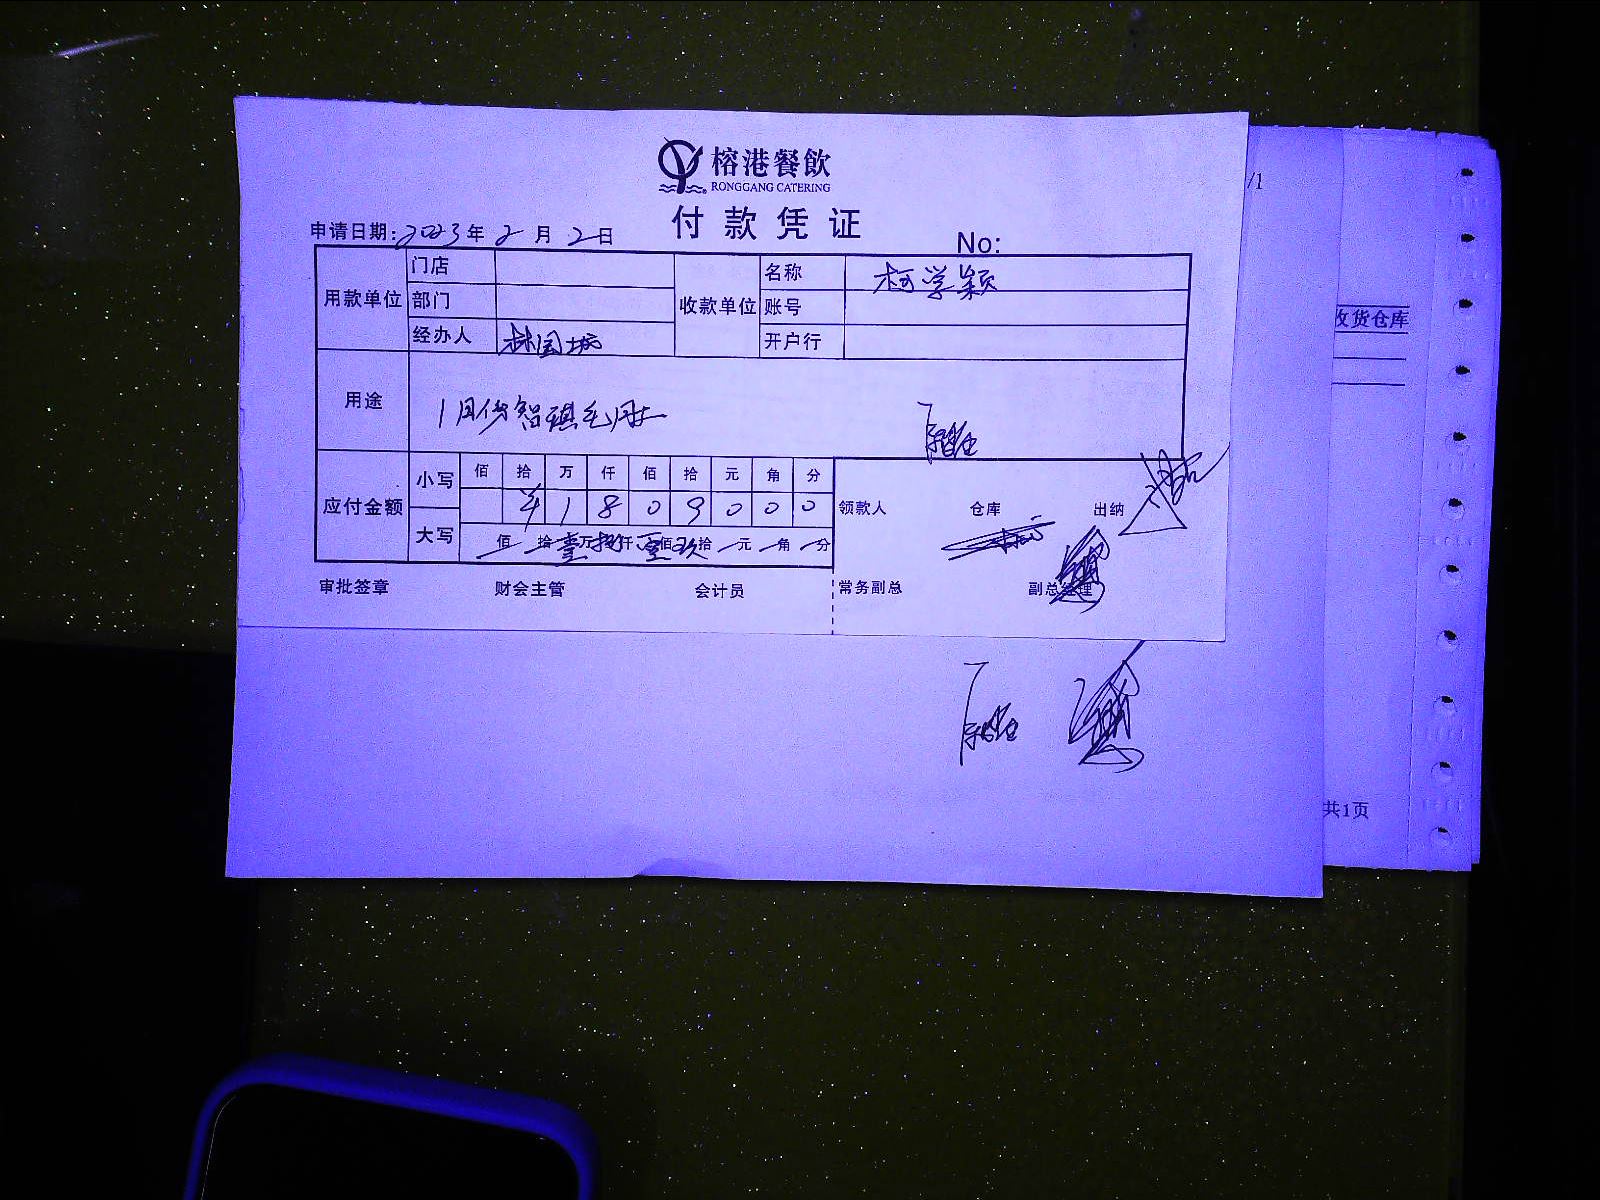 榕港餐飲
RONGGANG CATERING
付款凭证
申请日期:2023年2月2日
No:
用款单位
门店
部门
经办人
收款单位
名称 柯学颖
账号
开户行
用途
1月份
应付金额
小写
佰 拾 万 仟 佰 拾 元 角 分
¥ 1 8 0 9 0 0 0
大写
佰 拾 壹万 捌仟 零佰 玖拾 元 角 分
领款人
仓库
出纳
审批签章
财会主管
会计员
常务副总
副总经理
/1
收货仓库
共1页